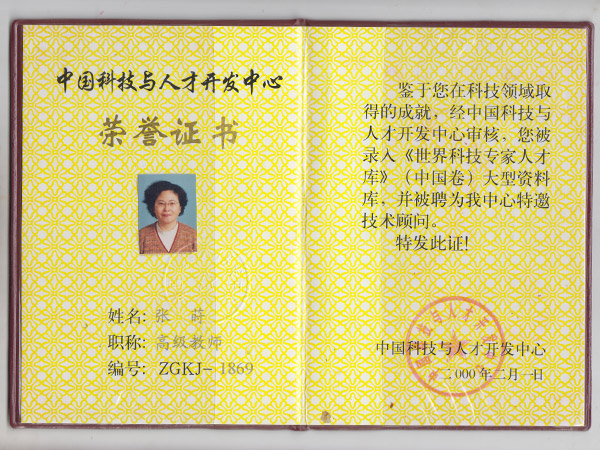 中国科技与人才开发中心
荣誉证书
姓名: 张 莳
职称: 高级教师
编号: ZGKJ-1869
鉴于您在科技领域取
得的成就，经中国科技与
人才开发中心审核，您被
录入《世界科技专家人才
库》（中国卷）大型资料
库，并被聘为我中心特邀
技术顾问。
特发此证！
中国科技与人才开发中心
二000年二月一日